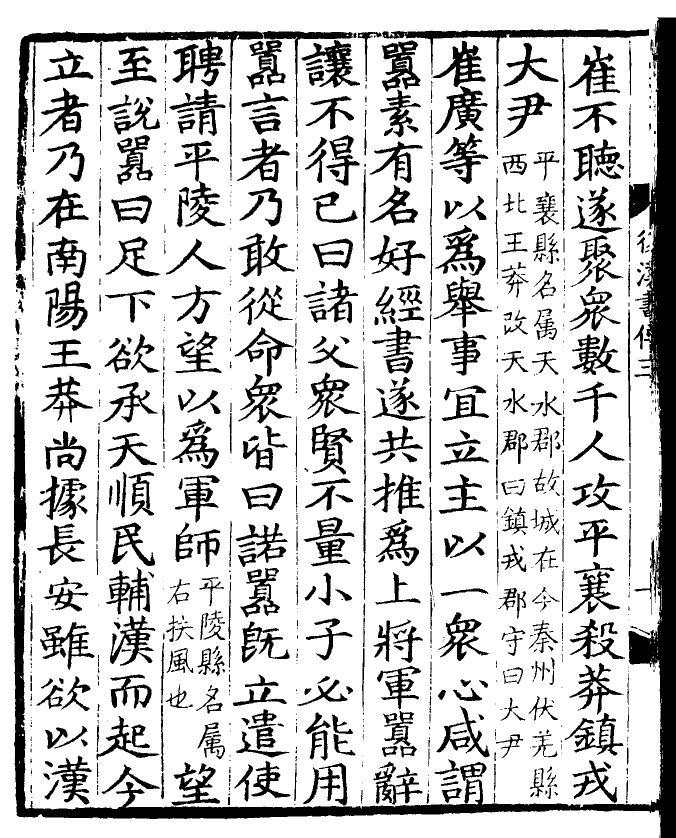 崔不聽遂聚衆數千人攻平襄殺莽鎮戎
大尹平襄縣名属天水郡故城在今秦州伏羌縣西北王莽改天水郡曰鎮戎郡守曰大尹
崔廣等以爲舉事宜立主以一衆心咸謂
囂素有名好經書遂共推爲上將軍囂辭
讓不得已曰諸父衆賢不量小子必能用
囂言者乃敢從命衆皆曰諾囂旣立遣使
聘請平陵人方望以爲軍師平陵縣名属右扶風也望
至說囂曰足下欲承天順民輔漢而起今
立者乃在南陽王莽尚據長安雖欲以漢